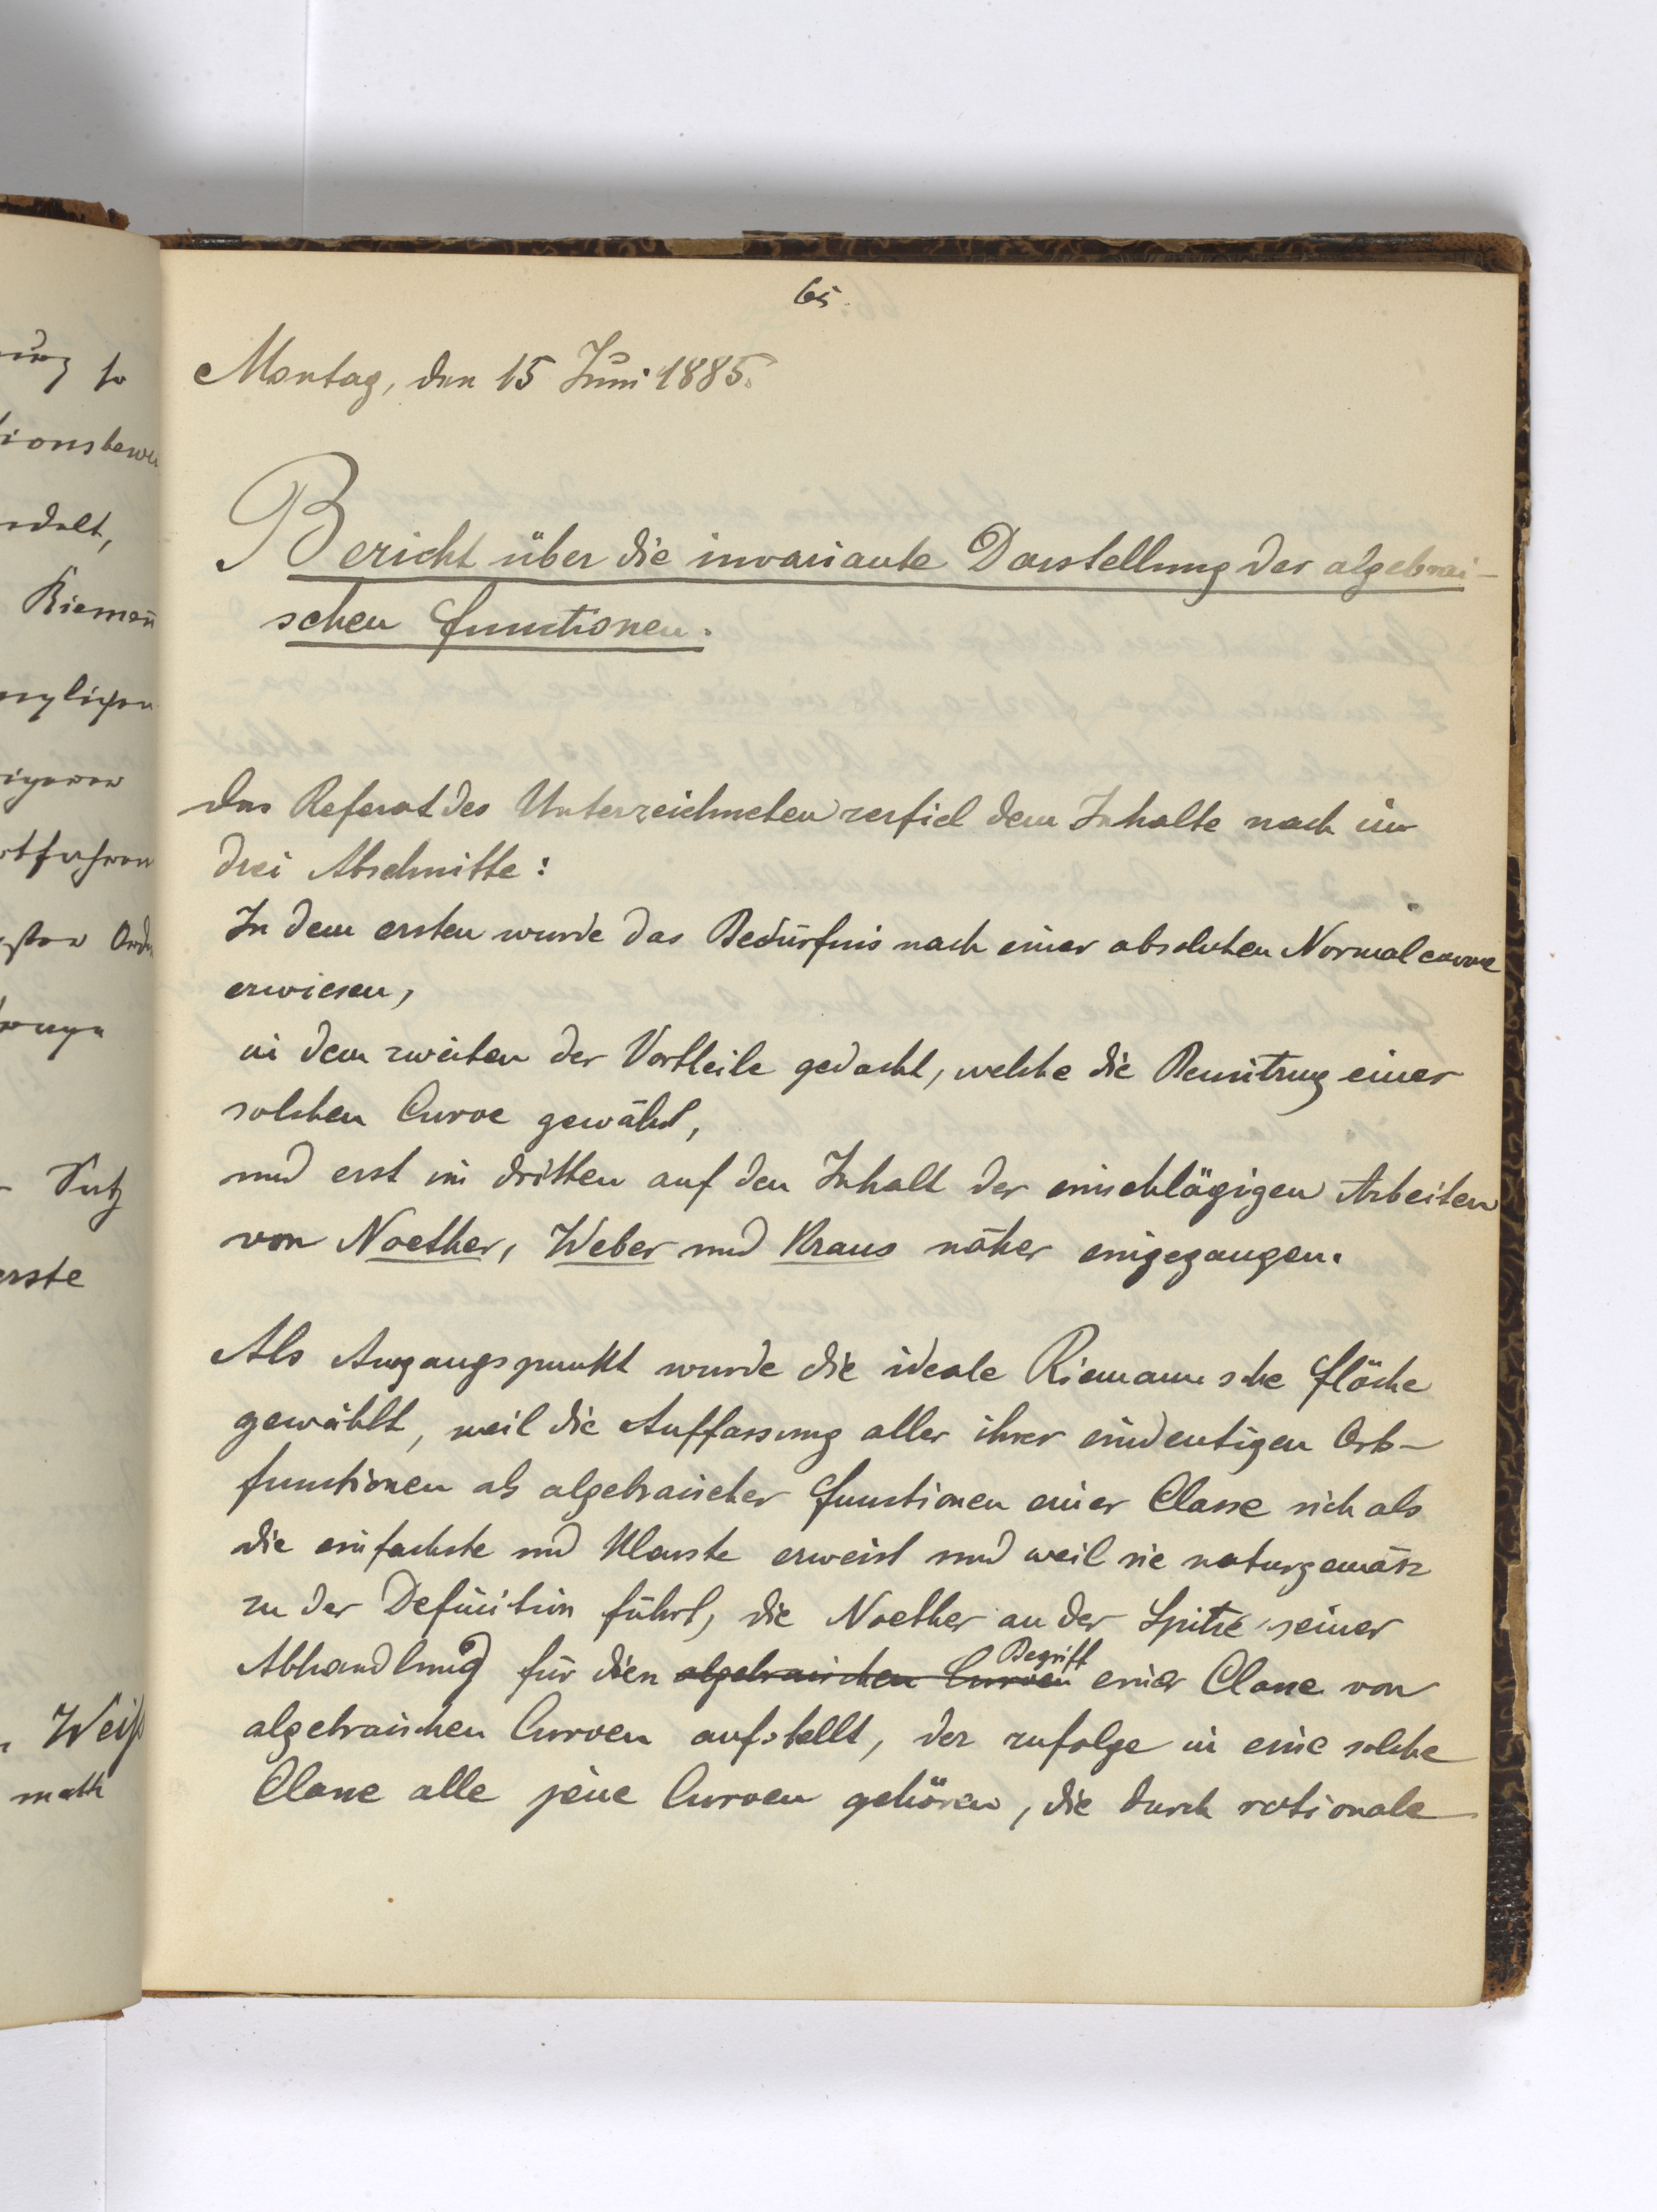 65.
Montag, den 15 Juni 1885.
Bericht über die invariante Darstellung der algebrai-
schen Functionen.
Das Referat des Unterzeichneten zerfiel dem Inhalte nach in
drei Abschnitte:
In dem ersten wurde das Bedürfnis nach einer absoluten Normalcurve
erwiesen,
in dem zweiten der Vortheile gedacht, welche die Benützung einer
solchen Curve gewährt,
und erst im dritten auf den Inhalt der einschlägigen Arbeiten
von Noether, Weber und Kraus näher eingegangen.
Als Ausgangspunkt wurde die ideale Riemannsche Fläche
gewählt, weil die Auffassung aller ihrer eindeutigen Orts-
functionen als algebraischer Functionen einer Classe sich als
die einfachste und klarste erweist und weil sie naturgemäsz
zu der Definition führt, die Noether an der Spitze seiner
Abhandlung für den algebraischen Curven Begriff einer Classe von
algebraischen Curven aufstellt, der zufolge in eine solche
Classe alle jene Curven gehören, die durch rationale
ung so
tionsbewe
ndelt,
Riemañ
Ordn
Satz
erste
Weiß
math